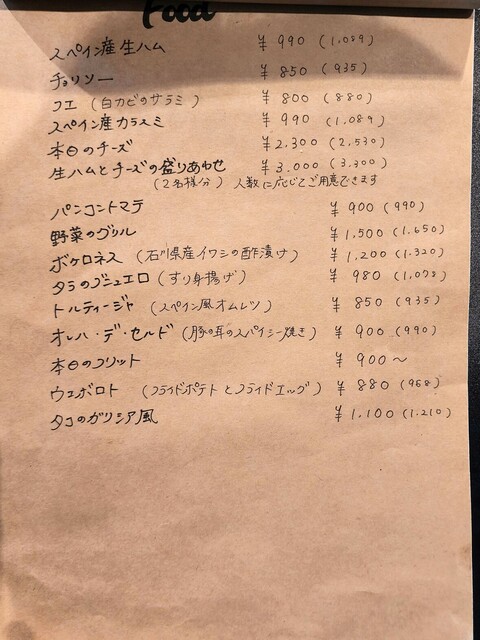 Food
スペイン産生ハム ¥990 (1,089)
チョリソー ¥850 (935)
フエ (白カビのサラミ) ¥800 (880)
スペイン産カラスミ ¥990 (1,089)
本日のチーズ ¥2,300 (2,530)
生ハムとチーズの盛りあわせ ¥3,000 (3,300)
(2名様分) 人数に応じてご用意できます
パンコントマテ ¥900 (990)
野菜のグリル ¥1,500 (1,650)
ボケロネス (石川県産イワシの酢漬け) ¥1,200 (1,320)
タラのブニュエロ (すり身揚げ) ¥980 (1,078)
トルティージャ (スペイン風オムレツ) ¥850 (935)
オレハ・デ・セルド (豚の耳のスパイシー焼き) ¥900 (990)
本日のフリット ¥900〜
ウエボロト (フライドポテトとフライドエッグ) ¥880 (968)
タコのガリシア風 ¥1,100 (1,210)